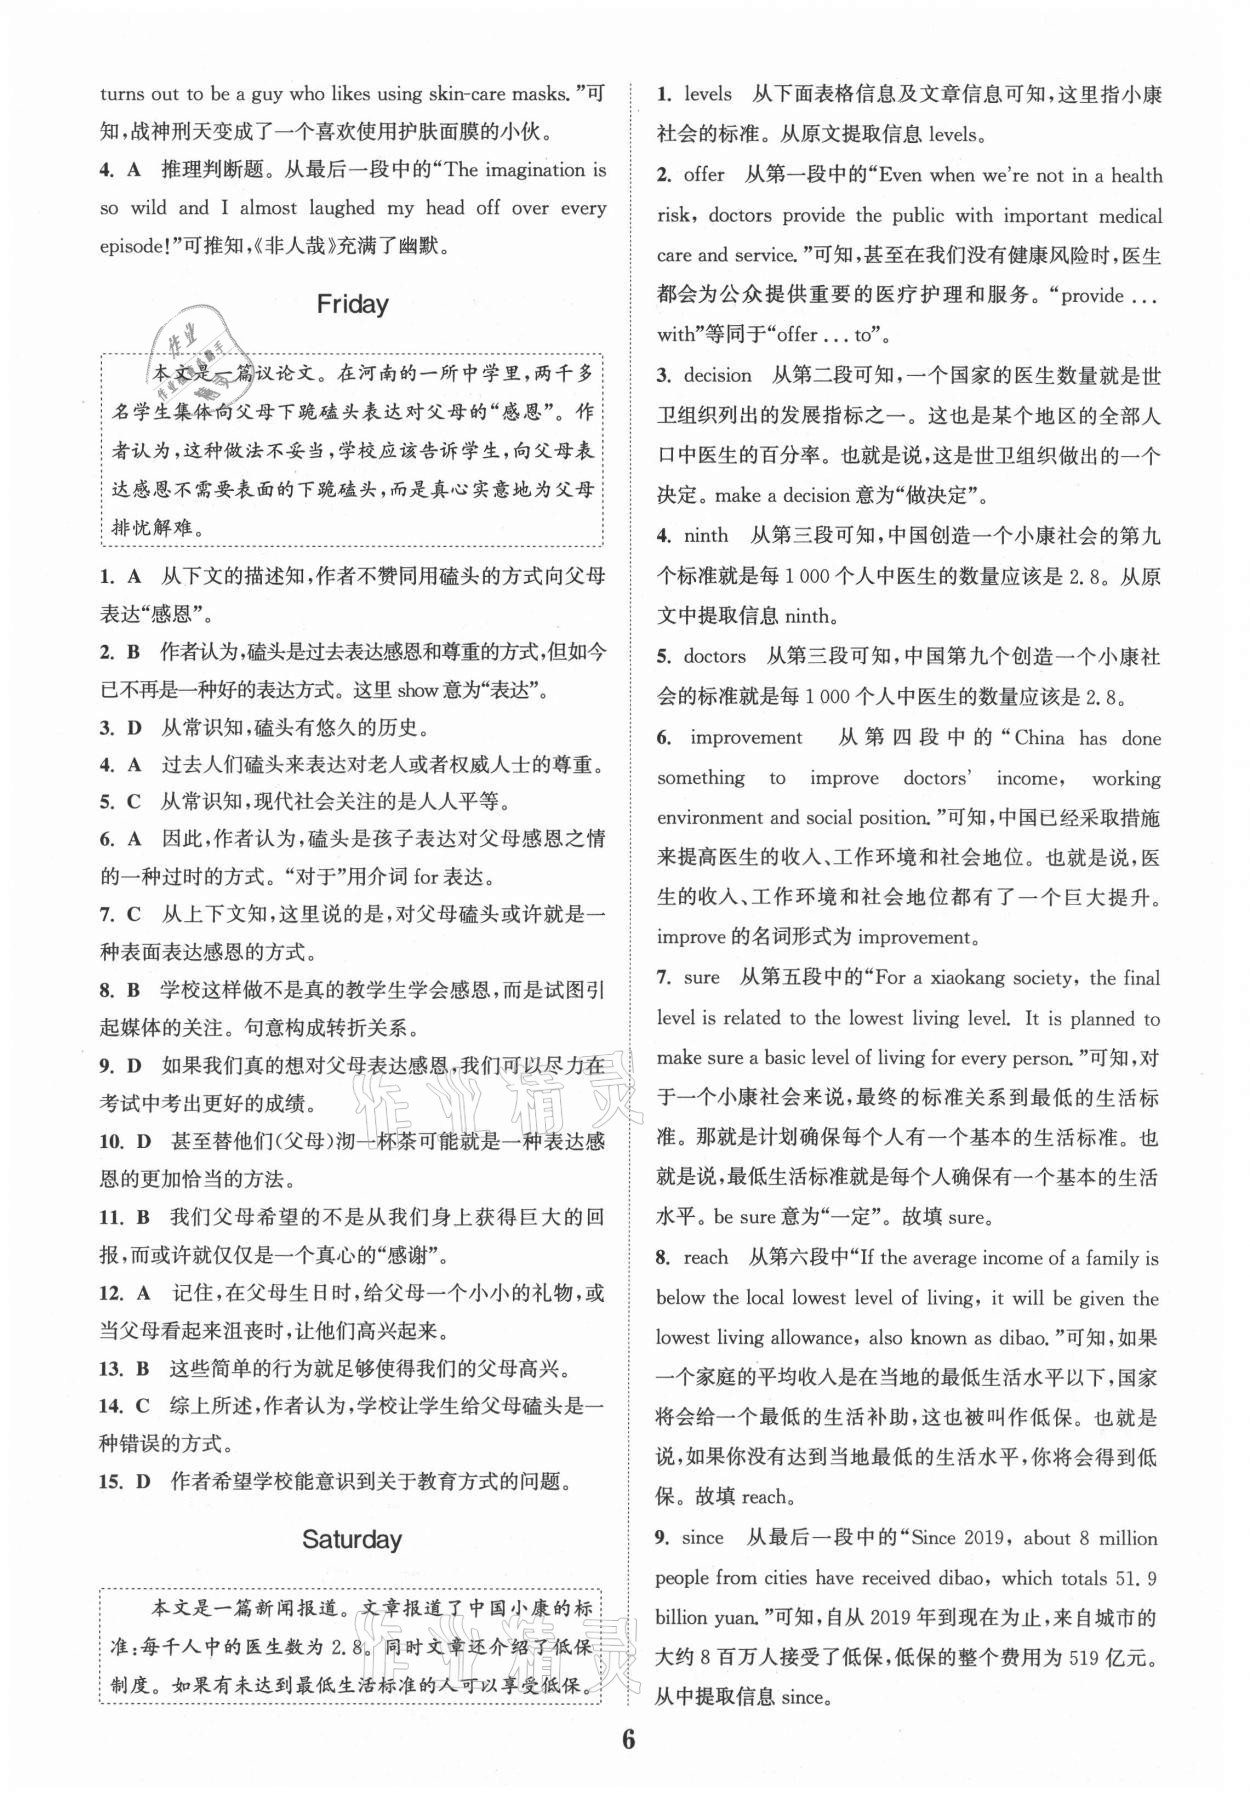 turns out to be a guy who likes using skin-care masks.”可
知，战神刑天变成了一个喜欢使用护肤面膜的小伙。
4. A 推理判断题。从最后一段中的“The imagination is
so wild and I almost laughed my head off over every
episode!”可推知，《非人哉》充满了幽默。
Friday
本文是一篇议论文。在河南的一所中学里，两千多
名学生集体向父母下跪磕头表达对父母的“感恩”。作
者认为，这种做法不妥当，学校应该告诉学生，向父母表
达感恩不需要表面的下跪磕头，而是真心实意地为父母
排忧解难。
1. A 从下文的描述知，作者不赞同用磕头的方式向父母
表达“感恩”。
2. B 作者认为，磕头是过去表达感恩和尊重的方式，但如今
已不再是一种好的表达方式。这里 show 意为“表达”。
3. D 从常识知，磕头有悠久的历史。
4. A 过去人们磕头来表达对老人或者权威人士的尊重。
5. C 从常识知，现代社会关注的是人人平等。
6. A 因此，作者认为，磕头是孩子表达对父母感恩之情
的一种过时的方式。“对于”用介词 for 表达。
7. C 从上下文知，这里说的是，对父母磕头或许就是一
种表面表达感恩的方式。
8. B 学校这样做不是真的教学生学会感恩，而是试图引
起媒体的关注。句意构成转折关系。
9. D 如果我们真的想对父母表达感恩，我们可以尽力在
考试中考出更好的成绩。
10. D 甚至替他们(父母)沏一杯茶可能就是一种表达感
恩的更加恰当的方法。
11. B 我们父母希望的不是从我们身上获得巨大的回
报，而或许就仅仅是一个真心的“感谢”。
12. A 记住，在父母生日时，给父母一个小小的礼物，或
当父母看起来沮丧时，让他们高兴起来。
13. B 这些简单的行为就足够使得我们的父母高兴。
14. C 综上所述，作者认为，学校让学生给父母磕头是一
种错误的方式。
15. D 作者希望学校能意识到关于教育方式的问题。
Saturday
本文是一篇新闻报道。文章报道了中国小康的标
准：每千人中的医生数为 2.8。同时文章还介绍了低保
制度。如果有未达到最低生活标准的人可以享受低保。
1. levels 从下面表格信息及文章信息可知，这里指小康
社会的标准。从原文提取信息 levels。
2. offer 从第一段中的“Even when we're not in a health
risk, doctors provide the public with important medical
care and service.”可知，甚至在我们没有健康风险时，医生
都会为公众提供重要的医疗护理和服务。“provide ...
with”等同于“offer ... to”。
3. decision 从第二段可知，一个国家的医生数量就是世
卫组织列出的发展指标之一。这也是某个地区的全部人
口中医生的百分率。也就是说，这是世卫组织做出的一个
决定。make a decision 意为“做决定”。
4. ninth 从第三段可知，中国创造一个小康社会的第九
个标准就是每 1 000 个人中医生的数量应该是 2.8。从原
文中提取信息 ninth。
5. doctors 从第三段可知，中国第九个创造一个小康社
会的标准就是每 1 000 个人中医生的数量应该是 2.8。
6. improvement 从第四段中的“China has done
something to improve doctors' income, working
environment and social position.”可知，中国已经采取措施
来提高医生的收入、工作环境和社会地位。也就是说，医
生的收入、工作环境和社会地位都有了一个巨大提升。
improve 的名词形式为 improvement。
7. sure 从第五段中的“For a xiaokang society, the final
level is related to the lowest living level. It is planned to
make sure a basic level of living for every person.”可知，对
于一个小康社会来说，最终的标准关系到最低的生活标
准。那就是计划确保每个人有一个基本的生活标准。也
就是说，最低生活标准就是每个人确保有一个基本的生活
水平。be sure 意为“一定”。故填 sure。
8. reach 从第六段中“If the average income of a family is
below the local lowest level of living, it will be given the
lowest living allowance, also known as dibao.”可知，如果
一个家庭的平均收入是在当地的最低生活水平以下，国家
将会给一个最低的生活补助，这也被叫作低保。也就是
说，如果你没有达到当地最低的生活水平，你将会得到低
保。故填 reach。
9. since 从最后一段中的“Since 2019, about 8 million
people from cities have received dibao, which totals 51.9
billion yuan.”可知，自从 2019 年到现在为止，来自城市的
大约 8 百万人接受了低保，低保的整个费用为 519 亿元。
从中提取信息 since。
6
作业精灵
作业精灵